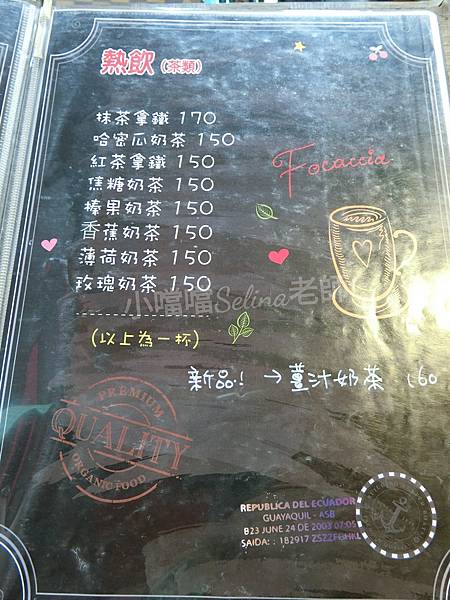 熱飲 (茶類)
抹茶拿鐵 170
哈密瓜奶茶 150
紅茶拿鐵 150
焦糖奶茶 150
榛果奶茶 150
香蕉奶茶 150
薄荷奶茶 150
玫瑰奶茶 150
Focaccia
小噹噹Selina老師
(以上為一杯)
新品! → 薑汁奶茶 160
PREMIUM
QUALITY
ORGANIC FOOD
REPUBLICA DEL ECUADOR
GUAYAQUIL - ASB
823 JUNE 24 DE 2003 07:05
SAIDA: : 182917